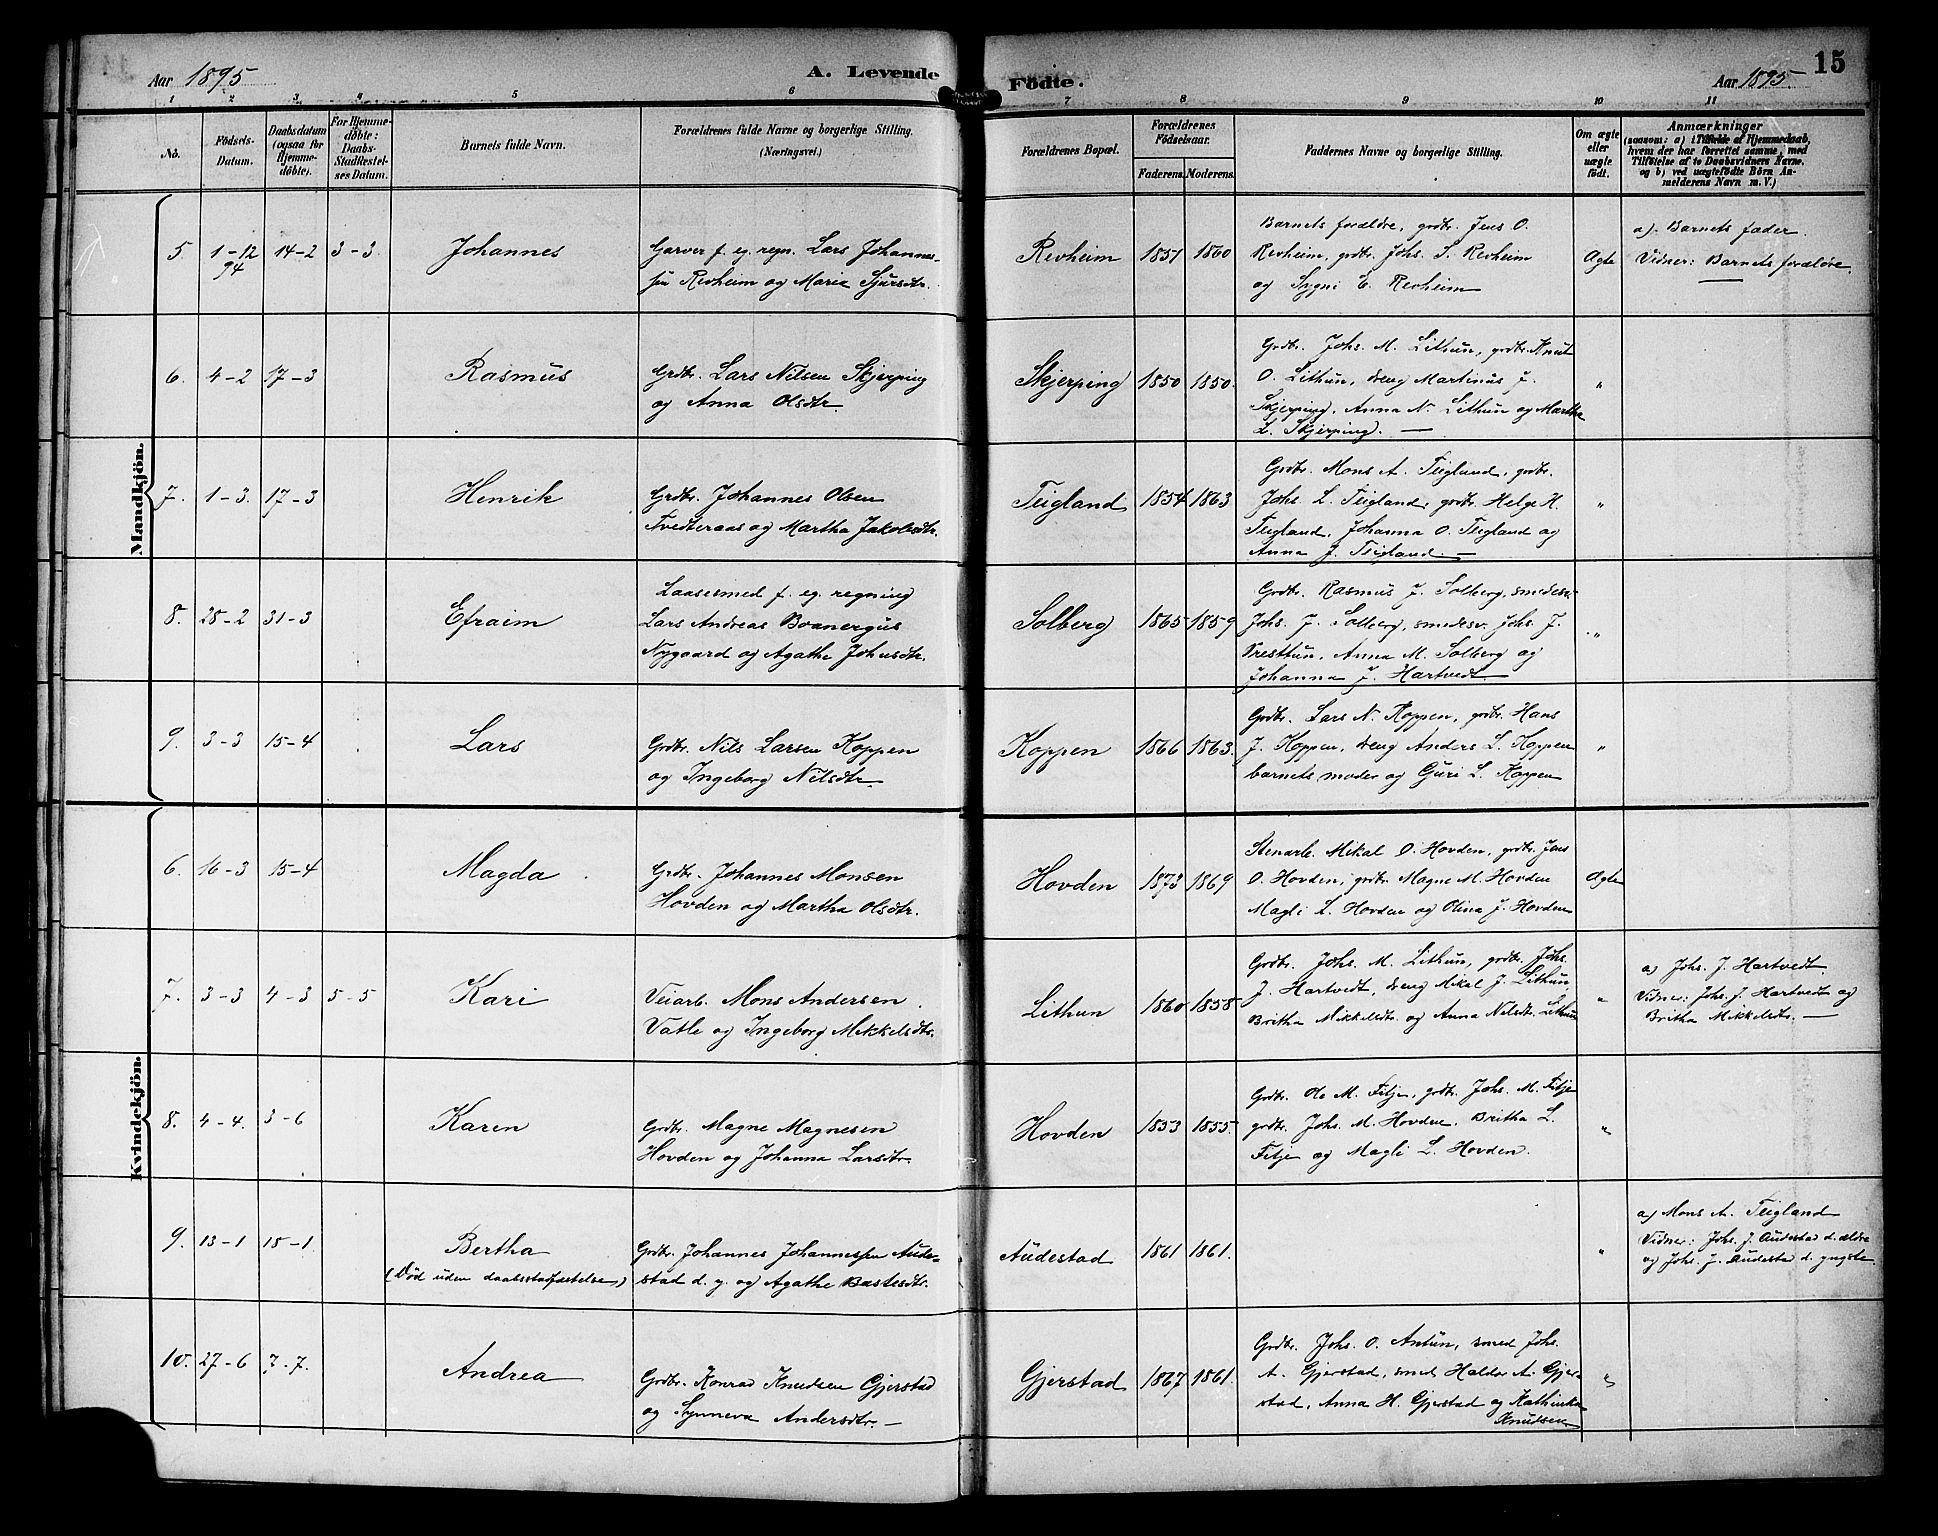 Aar 1895
A. Levende Födte.
Aar 1895.
15
1 2 3 4 5 6 7 8 9 10 11
No.
Födsels-Datum.
Daabsdatum (ogsaa for Hjemme-döbte).
For Hjemme-döbte: Daabs-Stadfæstel-ses Datum.
Barnets fulde Navn.
Forældrenes fulde Navne og borgerlige Stilling.
(Næringsvei.)
Forældrenes Bopæl.
Forældrenes Födselsaar.
Faderens. Moderens.
Faddernes Navne og borgerlige Stilling.
Om ægte eller uægte födt.
Anmærkninger
(saasom: a) i Tilfælde af Hjemmedaab,
hvem der har forrettet samme, med
Tilföielse af to Daabsvidners Navne,
og b) ved uægtefödte Börn An-
melderens Navn m. V.)
Mandkjön.
5. 1-12 94 14-2 3-3 Johannes
Garver f. eg. regn. Lars Johannes-
sen Revheim og Marie Sjursdtr.
Revheim 1851 1860
Barnets forældre, grdbr. Jens O.
Revheim, grdbr. Johs. S. Revheim
og Sygni E. Revheim
Ægte
a). Barnets fader.
Vidner: Barnets forældre.
6. 4-2 17-3 Rasmus
Grdbr. Lars Nilsen Skjerping
og Anna Olsdtr.
Skjerping 1850 1850.
Grdbr. Johs. M. Lithun, grdbr. Knut
O. Lithun, dreng Martinus J.
Skjerping, Anna N. Lithun og Martha
L. Skjerping. —
"
7. 1-3. 17-3 Henrik
Grdbr. Johannes Olsen
Tvedteraas og Martha Jakobsdtr.
Teigland 1854 1863
Grdbr. Mons A. Teigland, grdbr.
Johs. L. Teigland, grdbr. Helge H.
Teigland, Johanna O. Teigland og
Anna J. Teigland. —
"
8. 28-2 31-3 Efraim
Laasesmed f. eg. regning
Lars Andreas Boanergus
Nygaard og Agathe Johnsdtr.
Solberg 1865 1859
Grdbr. Rasmus J. Solberg, smedesv.
Johs. J. Solberg, smedesv. Johs. J.
Presthun, Anna M. Solberg og
Johanna J. Hartvedt
"
9. 3-3 15-4 Lars
Grdbr. Nils Larsen Koppen
og Ingeborg Nilsdtr.
Koppen 1866 1863.
Grdbr. Lars N. Koppen, grdbr. Hans
J. Koppen, dreng Anders L. Koppen
barnets moder og Guri L. Koppen
"
Kvindekjön.
6. 16-3 15-4 Magda
Grdbr. Johannes Monsen
Hovden og Martha Olsdtr.
Hovden 1873 1869
Stenarb. Mikal O. Hovden, grdbr. Jens
O. Hovden, grdbr Magne M. Hovden
Magli L. Hovden og Olina J. Hovden
Ægte
7. 3-3 4-3 5-5 Kari
Veiarb. Mons Andersen
Vatle og Ingeborg Mikkelsdtr.
Lithun 1860 1858
Grdbr. Johs. M. Lithun, grdbr. Johs.
J. Hartvedt, dreng Mikal J. Lithun,
Britha Mikkelsdtr. og Anna Nilsdt. Lithun
"
a) Johs. J. Hartvedt.
Vidner: Johs. J. Hartvedt og
Britha Mikkelsdtr. —
8. 4-4. 3-6 Karen
Grdbr. Magne Magnesen
Hovden og Johanna Larsdtr.
Hovden 1853 1855.
Grdbr. Ole M. Fitje, grdbr. Johs. M. Fitje
grdbr. Johs. M. Hovden. Britha L.
Fitje og Magli L. Hovden.
"
9. 13-1 18-1. Bertha
(Död uden daabsstadfæstelse)
Grdbr. Johannes Johannessen Aude-
stad d. y. og Agathe Bastesdtr.
Audestad 1861 1861.
"
a) Mons A. Teigland
Vidner: Johs. J. Audestad d. ældre
og Johs. J. Audestad d. yngste
10. 27-6 7-7. Andrea
Grdbr. Konrad Knudsen Gjerstad
og Synneva Andersdtr. —
Gjerstad 1867 1861.
Grdbr. Johs. O. Antun, smed Johs.
A. Gjerstad, smed Haldor A. Gjer-
stad, Anna H. Gjerstad og Kathinka
Knudsen
"